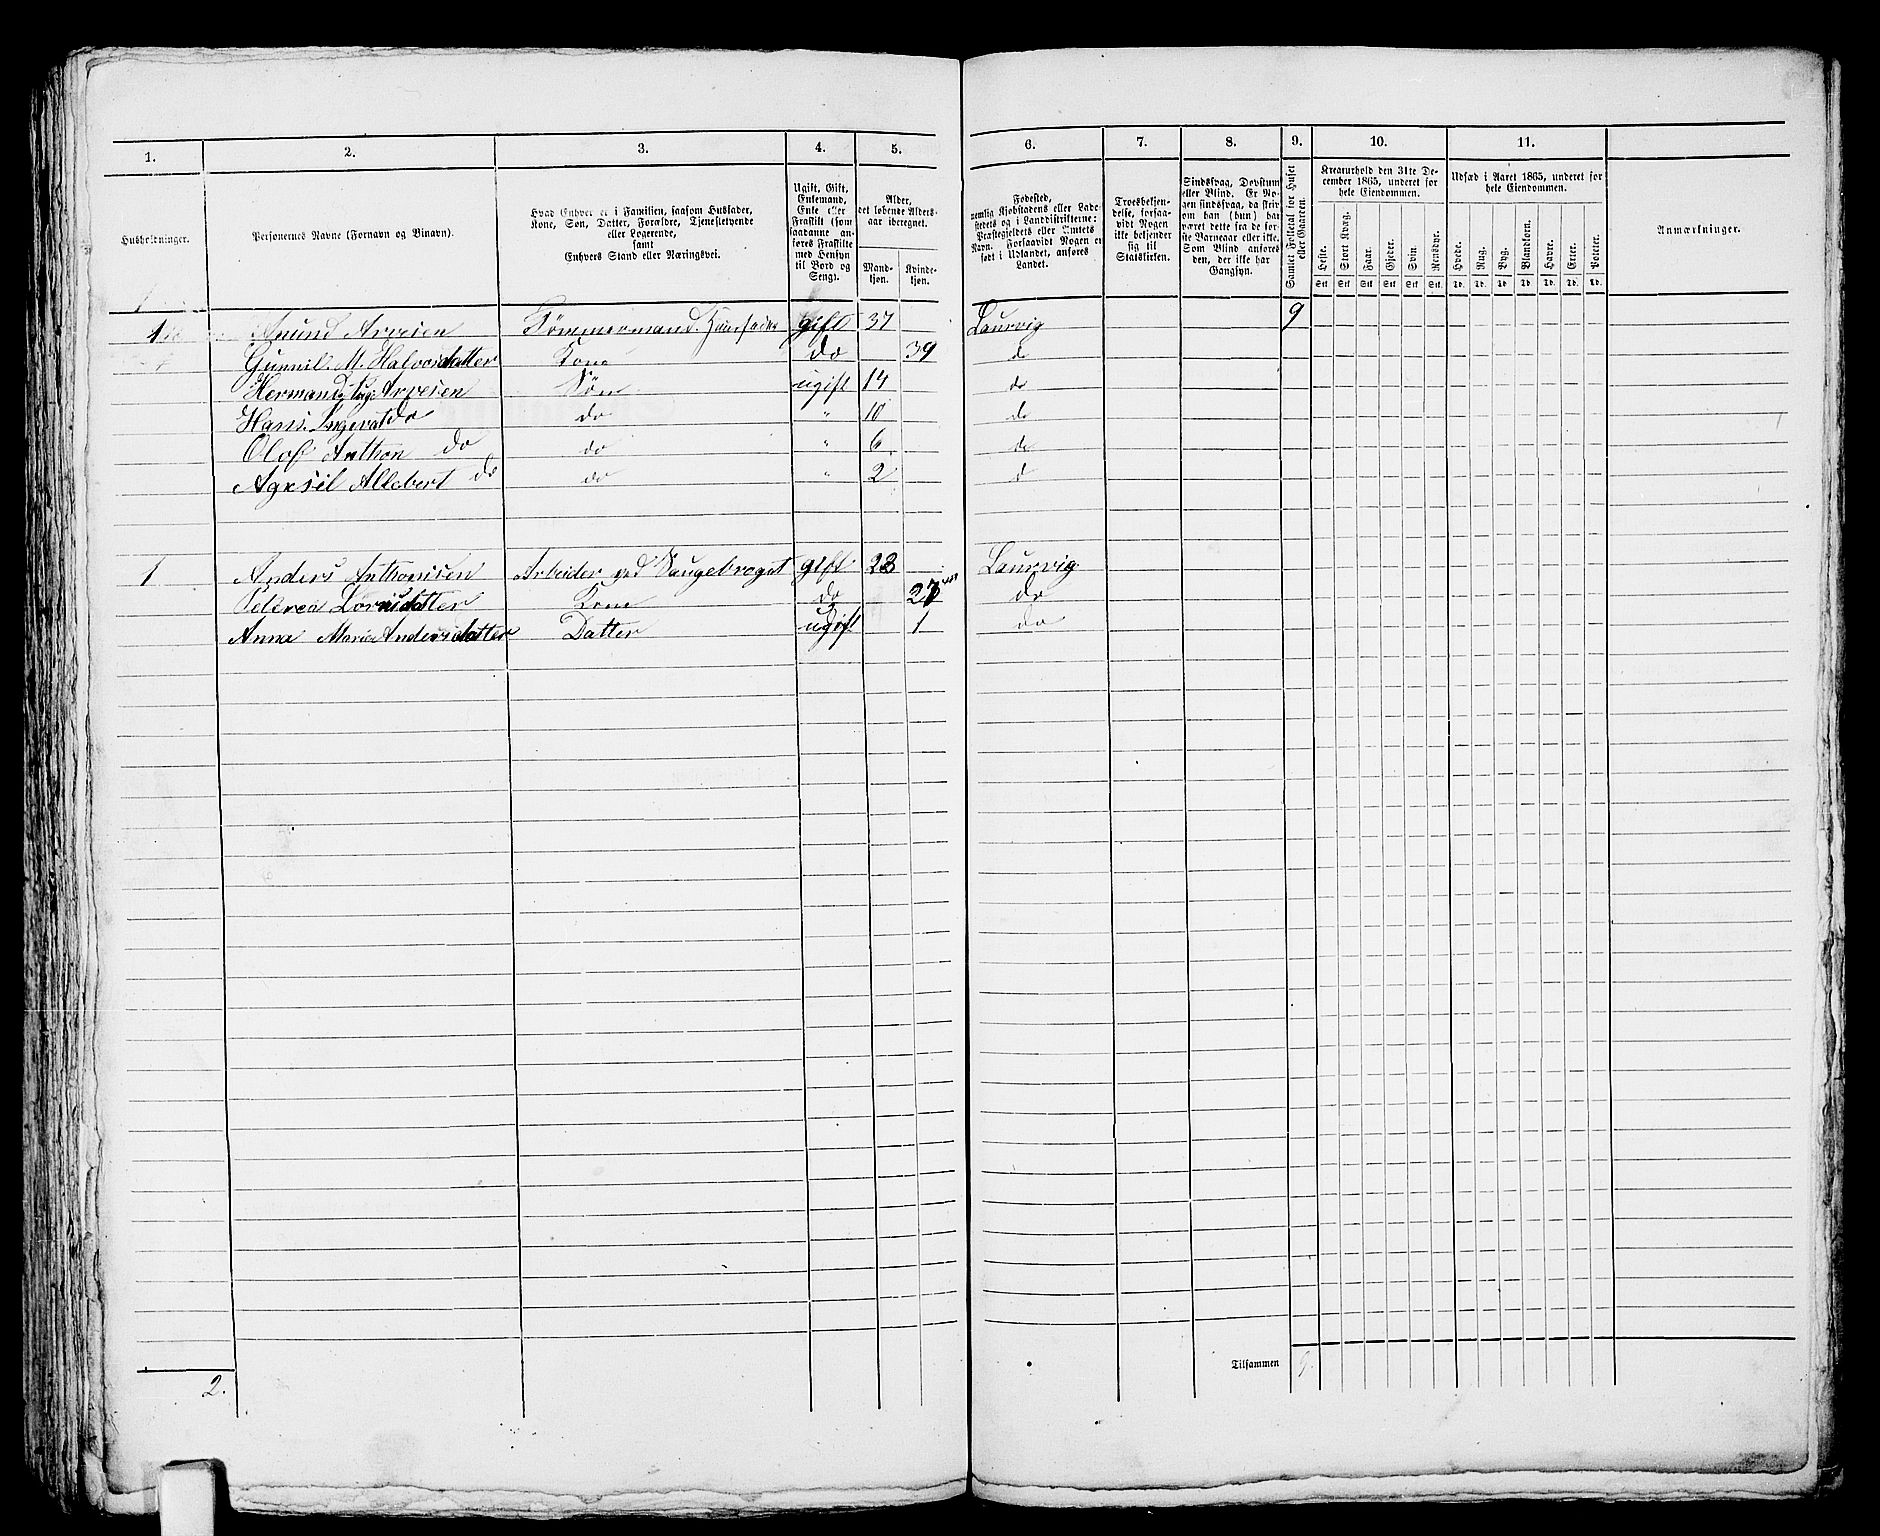 1. 2. 3. 4. 5. 6. 7. 8. 9. 10. 11.
Husholdninger.
Personernes Navne (Fornavn og Binavn).
Hvad Enhver er i Familien, saasom Husfader,
Kone, Søn, Datter, Forældre, Tjenestetyende
eller Logerende,
samt
Enhvers Stand eller Næringsvei.
Ugift, Gift,
Enkemand,
Enke eller
Fraskilt (som
saadanne an-
føres Fraskilte
med Hensyn
til Bord og
Seng).
Alder,
det løbende Alders-
aar iberegnet.
Mand-
kjøn.
Kvinde-
kjøn.
Fødested,
nemlig Kjøbstadens eller Lade-
stedets og i Landdistrikterne:
Præstegjeldets eller Amtets
Navn. Forsaavidt Nogen er
født i Udlandet, anføres
Landet.
Troesbekjen-
delse, forsaa-
vidt Nogen
ikke bekjender
sig til
Statskirken.
Sindssvag, Døvstum
eller Blind. Er No-
gen sindssvag, da skriv
om han (hun) har
været dette fra de før-
ste Barneaar eller ikke.
Som Blind anføres
den, der ikke har
Gangsyn.
Samlet Folketal for Huset
eller Gaarden.
Kreaturhold den 31te De-
cember 1865, underet for
hele Eiendommen.
Heste. Stort Kvæg. Faar. Gjeder. Svin. Rensdyr.
Stk Stk Stk Stk Stk Stk
Udsæd i Aaret 1865, underet for
hele Eiendommen.
Hvede. Rug. Byg. Blandkorn. Havre. Erter. Poteter.
Td. Td. Td Td. Td. Td. Td.
Anmærkninger.
1 Anund Arvesen Tømmermand. Huusfader gift 37 Laurvig 9
Gunnil. M. Halvorsdatter Kone do 39 d
Herman Arvesen Søn ugift 14 do
Hans Ingevat do do " 10 do
Olof Anthon do do " 6 do
Agesil Allebert do do " 2 d
1 Anders Anthonisen Arbeider ved Saugebruget gift 23 Laurvig
Petrea Larsdatter Kone do 27 do
Anna Marie Andersdatter Datter ugift 1 do
Tilsammen 9.
2.